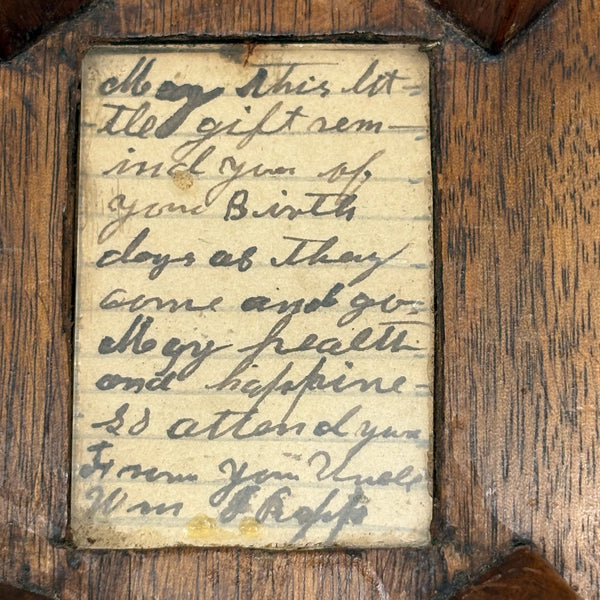 May this lit=
-tle gift rem-
ind you of
your Birth
days as they
come and go-
May health
and happine-
ss attend you
From your Uncle
Wm Rapp